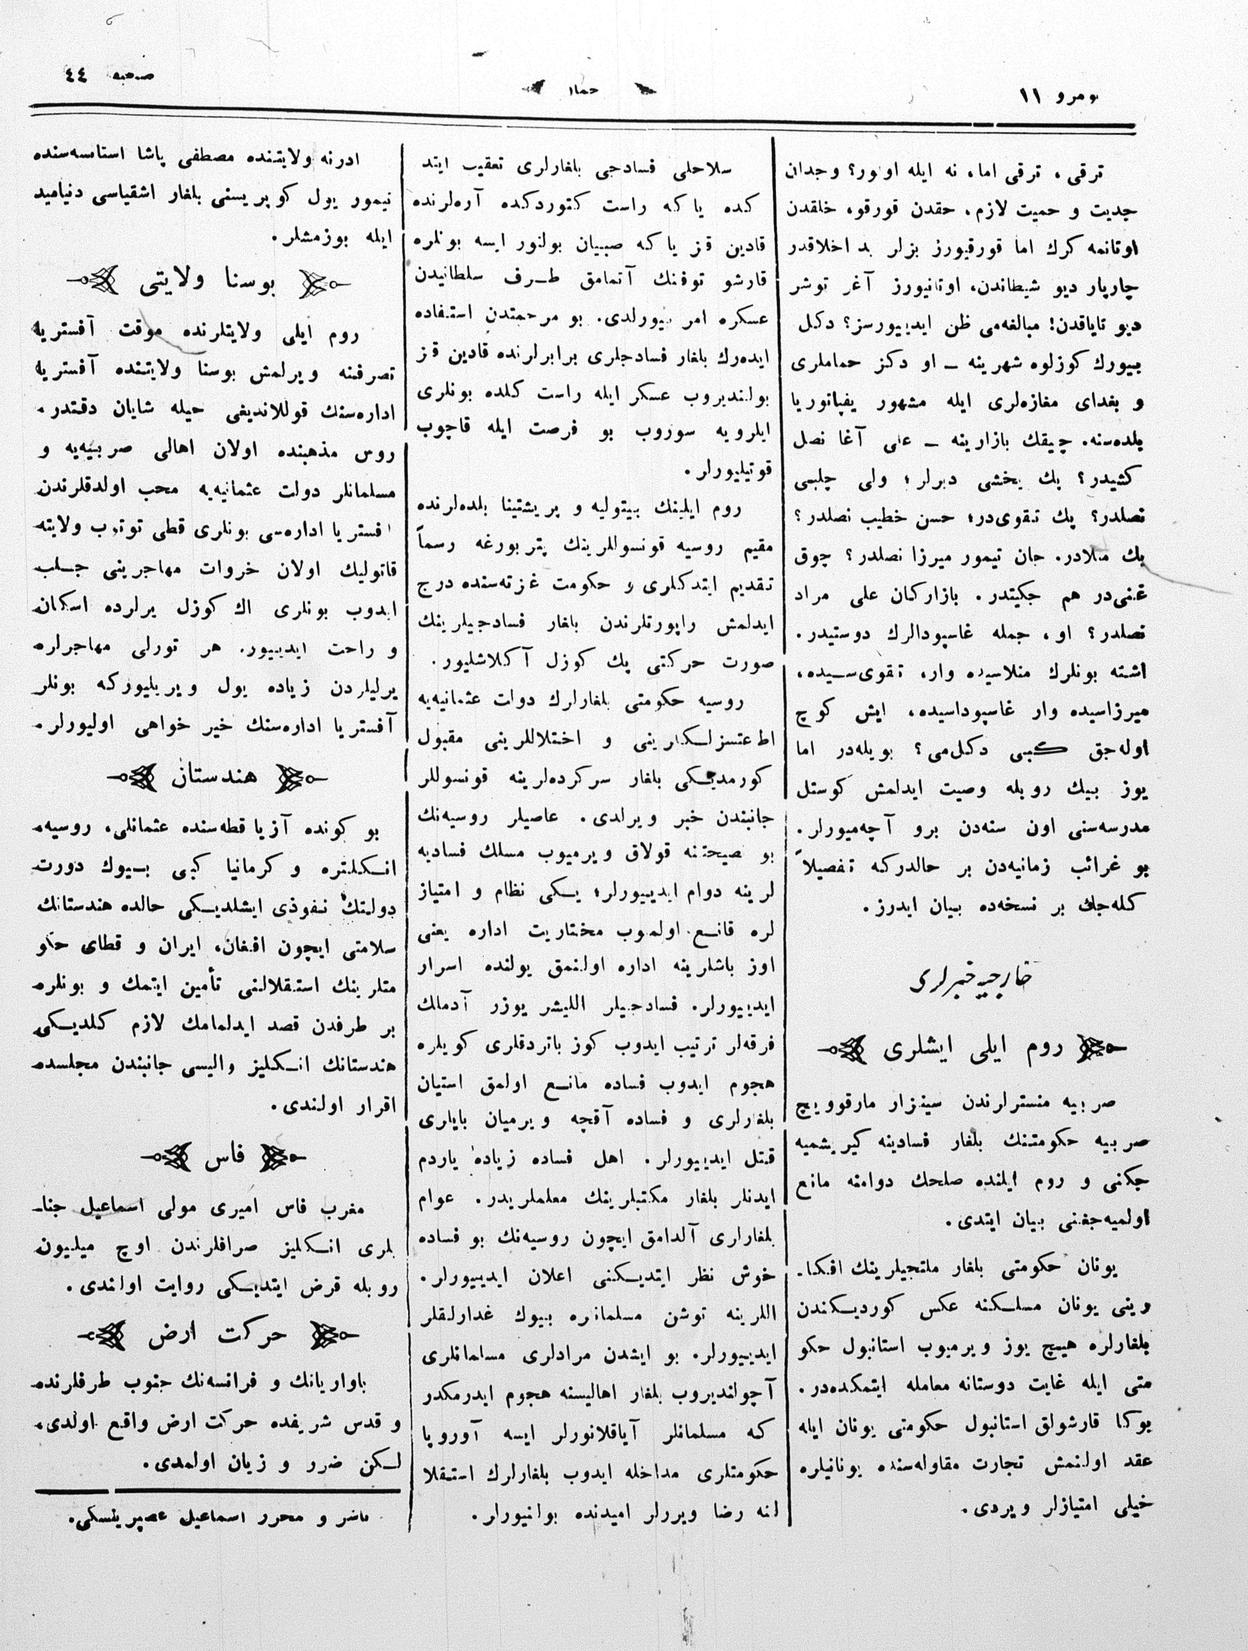 نومرو ١١
صحیفه ٤٤
ترقی، ترقی اما، نه ایله اولور؟ وجدان
جدیت و حمیت لازم. حقدن قورقو، خلقدن
اوتانمه کرك اما قورقیورز بزلر بد اخلاقدر
چارپار دیو شیطاندن، اوتانیورز آغر توشر
دیو تایاقدن! مبالغه‌می ظن ایدییورسز؟ دکل
بیورك کوزلوه شهرینه ــ او دکز حماملری
و بغدای مغازه‌لری ایله مشهور یفپاتوریا
بلده‌سنه. چیقك بازارینه ــ علی آغا نصل
کشیدر؟ پك یخشی دیرلر؛ ولی چلبی
نصلدر؟ پك تقوی‌در؛ حسن خطیب نصلدر؟
پك منلادر. جان تیمور میرزا نصلدر؟ چوق
غنی‌در هم جکیتدر. بازارکان علی مراد
نصلدر؟ او، جمله غاسپودالرك دوستیدر.
اشته بونلرك منلاسیده وار، تقوی‌سـیده،
میرزاسیده وار غاسپوداسیده، ایش کوچ
اوله‌جق کبی دکل‌می؟ بویله‌در اما
یوز بیك روبله وصیت ایدلمش کوستل
مدرسه‌سنی اون سنه‌دن برو آچه‌میورلر.
بو غرائب زمانیه‌دن بر حالدرکه تفصیلاً
کله‌جك بر نسخه‌ده بیان ایدرز.
خارجیه خبرلری
روم ایلی ایشلری
صربیه منسترلرندن سینزار مارقوویچ
صربیه حکومتنك بلغار فسادینه کیریشمیه
جکنی و روم ایلنده صلحك دوامنه مانع
اولمیه‌جغنی بیان ایتدی.
یونان حکومتی بلغار ملتجیلرینك افکا۔
رینی یونان مسلـکنه عکس کوردیـکندن
بلغارلره هیـچ یوز ویرمیوب استانبول حکو
متی ایله غایت دوستانه معامله ایتمکده‌در.
بوکا قارشولق استانبول حکومتی یونان ایله
عقد اولنمش تجارت مقاوله‌سنده یونانیلره
خیلی امتیازلر ویردی.
سلاحلی فسادجی بلغارلری تعقیب ایتد
کده یا که راست کتوردکده آره‌لرنده
قادین قز یا که صبییان بولنور ایسه بونلره
قارشو توفنك آتمامق طـرف سلطانیدن
عسکره امر بیورلدی. بو مرحمتدن استفاده
ایده‌رك بلغار فسادجلری برابرلرنده قادین قز
بولندیروب عسکر ایله راست کلده بونلری
ایلرویه سوروب بو فرصت ایله قاچوب
قوتیلیورلر.
روم ایلینك بیتولیه و پریشتینا بلده‌لرنده
مقیم روسیه قونسوللرینك پتربورغه رسماً
تقدیم ایتدکلری و حکومت غزته‌سنده درج
ایدلمش راپورتلرندن بلغار فسادجیلرینك
صورت حرکتی پك کوزل آکلاشلیور.
روسیه حکومتی بلغارلرك دولت عثمانیه‌یه
اطاعتسزلـکلرینی و اختلاللرینی مقبول
کورمدیـکی بلغار سرکرده‌لرینه قونسوللر
جانبندن خبر ویرلدی. عاصیلر روسیه‌نك
بو نصیحتنه قولاق ویرمیوب مسلك فسادیه
لرینه دوام ایدییورلر؛ یـکی نظام و امتیاز
لره قانـع اولمیوب مختاریت اداره یعنی
اوز باشلرینه اداره اولنمق یولنده اسرار
ایدییورلر. فسادجیلر اللیشر یوزر آدملك
فرقه‌لر ترتیب ایدوب کوز باتردقلری کویلره
هجوم ایدوب فساده مانـع اولمق استیان
بلغارلری و فساده آقچه ویرمیان بایلری
قتل ایدییورلر. اهل فساده زیاده یاردم
ایدنلر بلغار مکتبلرینك معلملریدر. عوام
بلغارلری آلدامق ایچون روسیه‌نك بو فساده
خوش نظر ایتدیـکنی اعلان ایدییورلر.
اللرینه توشن مسلمانره بیوك غدارلـقلر
ایدییورلر. بو ایشدن مرادلری مسلمانلری
آچولندیروب بلغار اهالیسنه هجوم ایدرمکدر
که مسلمانلر آیاقلانورلر ایسه آوروپا
حکومتلری مداخله ایدوب بلغارلرك استقلا
لنه رضا ویررلر امیدنده بولنیورلر.
ادرنه ولایتنده مصطفی پاشا استانسه‌سنده
تیمور یول کوپریسنی بلغار اشقیاسی دنیامید
ایله بوزمشلر.
بوسنا ولایتی
روم ایلی ولایتلرنده موقت آفستریه
تصرفنه ویرلمش بوسنا ولایتنده آفستریه
اداره‌سنك قوللاندیغی حیله شایان دقتدر.
روس مذهبنده اولان اهالی صربیه‌یه و
مسلمانلر دولت عثمانیه‌یه محب اولدقلرندن
آفستریا اداره‌سی بونلری قطی توتوب ولایته
قاتولیك اولان خروات مهاجرینی جـلب
ایدوب بونلری اك کوزل یرلرده اسکان
و راحت ایدییور. هر تورلی مهاجرلره
یرلیلردن زیاده یول ویریلیورکه بونلر
آفستریا اداره‌سنك خیر خواهی اولیورلر.
هندستان
بو کونده آزیا قطه‌سنده عثمانلی، روسیه،
انـکلتره و کرمانیا کبی بـیوك دورت
دولتك نفوذی ایشلدیـکی حالده هندستانك
سلامتی ایچون افغان، ایران و قطای حکو
متلرینك استقلالنی تأمین ایتمك و بونلره
بر طرفدن قصد ایدلمامك لازم کلدیـکی
هندستانك انـکلیز والیسی جانبندن مجلسده
اقرار اولندی.
فاس
مغرب فاس امیری مولی اسماعیل جنا۔
بلری انـکلیز صرافلرندن اوچ میلیون
روبله قرض ایتدیـکی روایت اولندی.
حرکت ارض
باواریانك و فرانسه‌نك جنوب طرفلرنده
و قدس شریفده حرکت ارض واقع اولدی،
لـکن ضرر و زیان اولمدی.
ناشر و محرر اسماعیل غصپرینسکی.